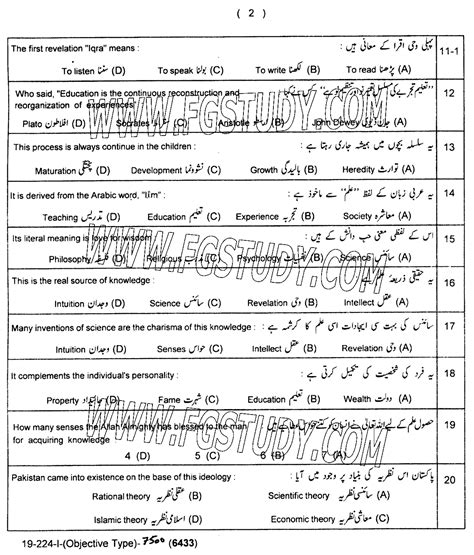 ( 2 )
The first revelation "Iqra" means : پہلی وحی اقرا کے معانی ہیں : 11-1
To listen سننا (D) To speak بولنا (C) To write لکھنا (B) To read پڑھنا (A)
Who said, "Education is the continuous reconstruction and 12
reorganization of experiences"
Plato افلاطون (D) Socrates سقراط (C) Aristotle ارسطو (B) John Dewey جان ڈیوی (A)
This process is always continue in the children : یہ سلسلہ بچوں میں ہمیشہ جاری رہتا ہے : 13
Maturation پختگی (D) Development نشوونما (C) Growth بالیدگی (B) Heredity توارث (A)
It is derived from the Arabic word, "Ilm" : یہ عربی زبان کے لفظ "علم" سے ماخوذ ہے : 14
Teaching تدریس (D) Education تعلیم (C) Experience تجربہ (B) Society معاشرہ (A)
Its literal meaning is love for wisdom اس کے لفظی معنی حب دانش کے ہیں : 15
Philosophy فلسفہ (D) Religious مذہب (C) Psychology نفسیات (B) Science سائنس (A)
This is the real source of knowledge : یہ حقیقی ذریعۂ علم ہے : 16
Intuition وجدان (D) Science سائنس (C) Revelation وحی (B) Intellect عقل (A)
Many inventions of science are the charisma of this knowledge : سائنس کی بہت سی ایجادات اسی علم کا کرشمہ ہے : 17
Intuition وجدان (D) Senses حواس (C) Intellect عقل (B) Revelation وحی (A)
It complements the individual's personality : یہ فرد کی شخصیت کی تکمیل کرتی ہے : 18
Property جائیداد (D) Fame شہرت (C) Education تعلیم (B) Wealth دولت (A)
How many senses the Allah Almighty has blessed to the man 19
for acquiring knowledge
4 (D) 5 (C) 6 (B) 7 (A)
Pakistan came into existence on the base of this ideology : پاکستان اس نظریہ کی بنیاد پر وجود میں آیا : 20
Rational theory عقلی نظریہ (B) Scientific theory سائنسی نظریہ (A)
Islamic theory اسلامی نظریہ (D) Economic theory معاشی نظریہ (C)
19-224-I-(Objective Type)-7500 (6433)
WWW.FGSTUDY.COM
WWW.FGSTUDY.COM
WWW.FGSTUDY.COM